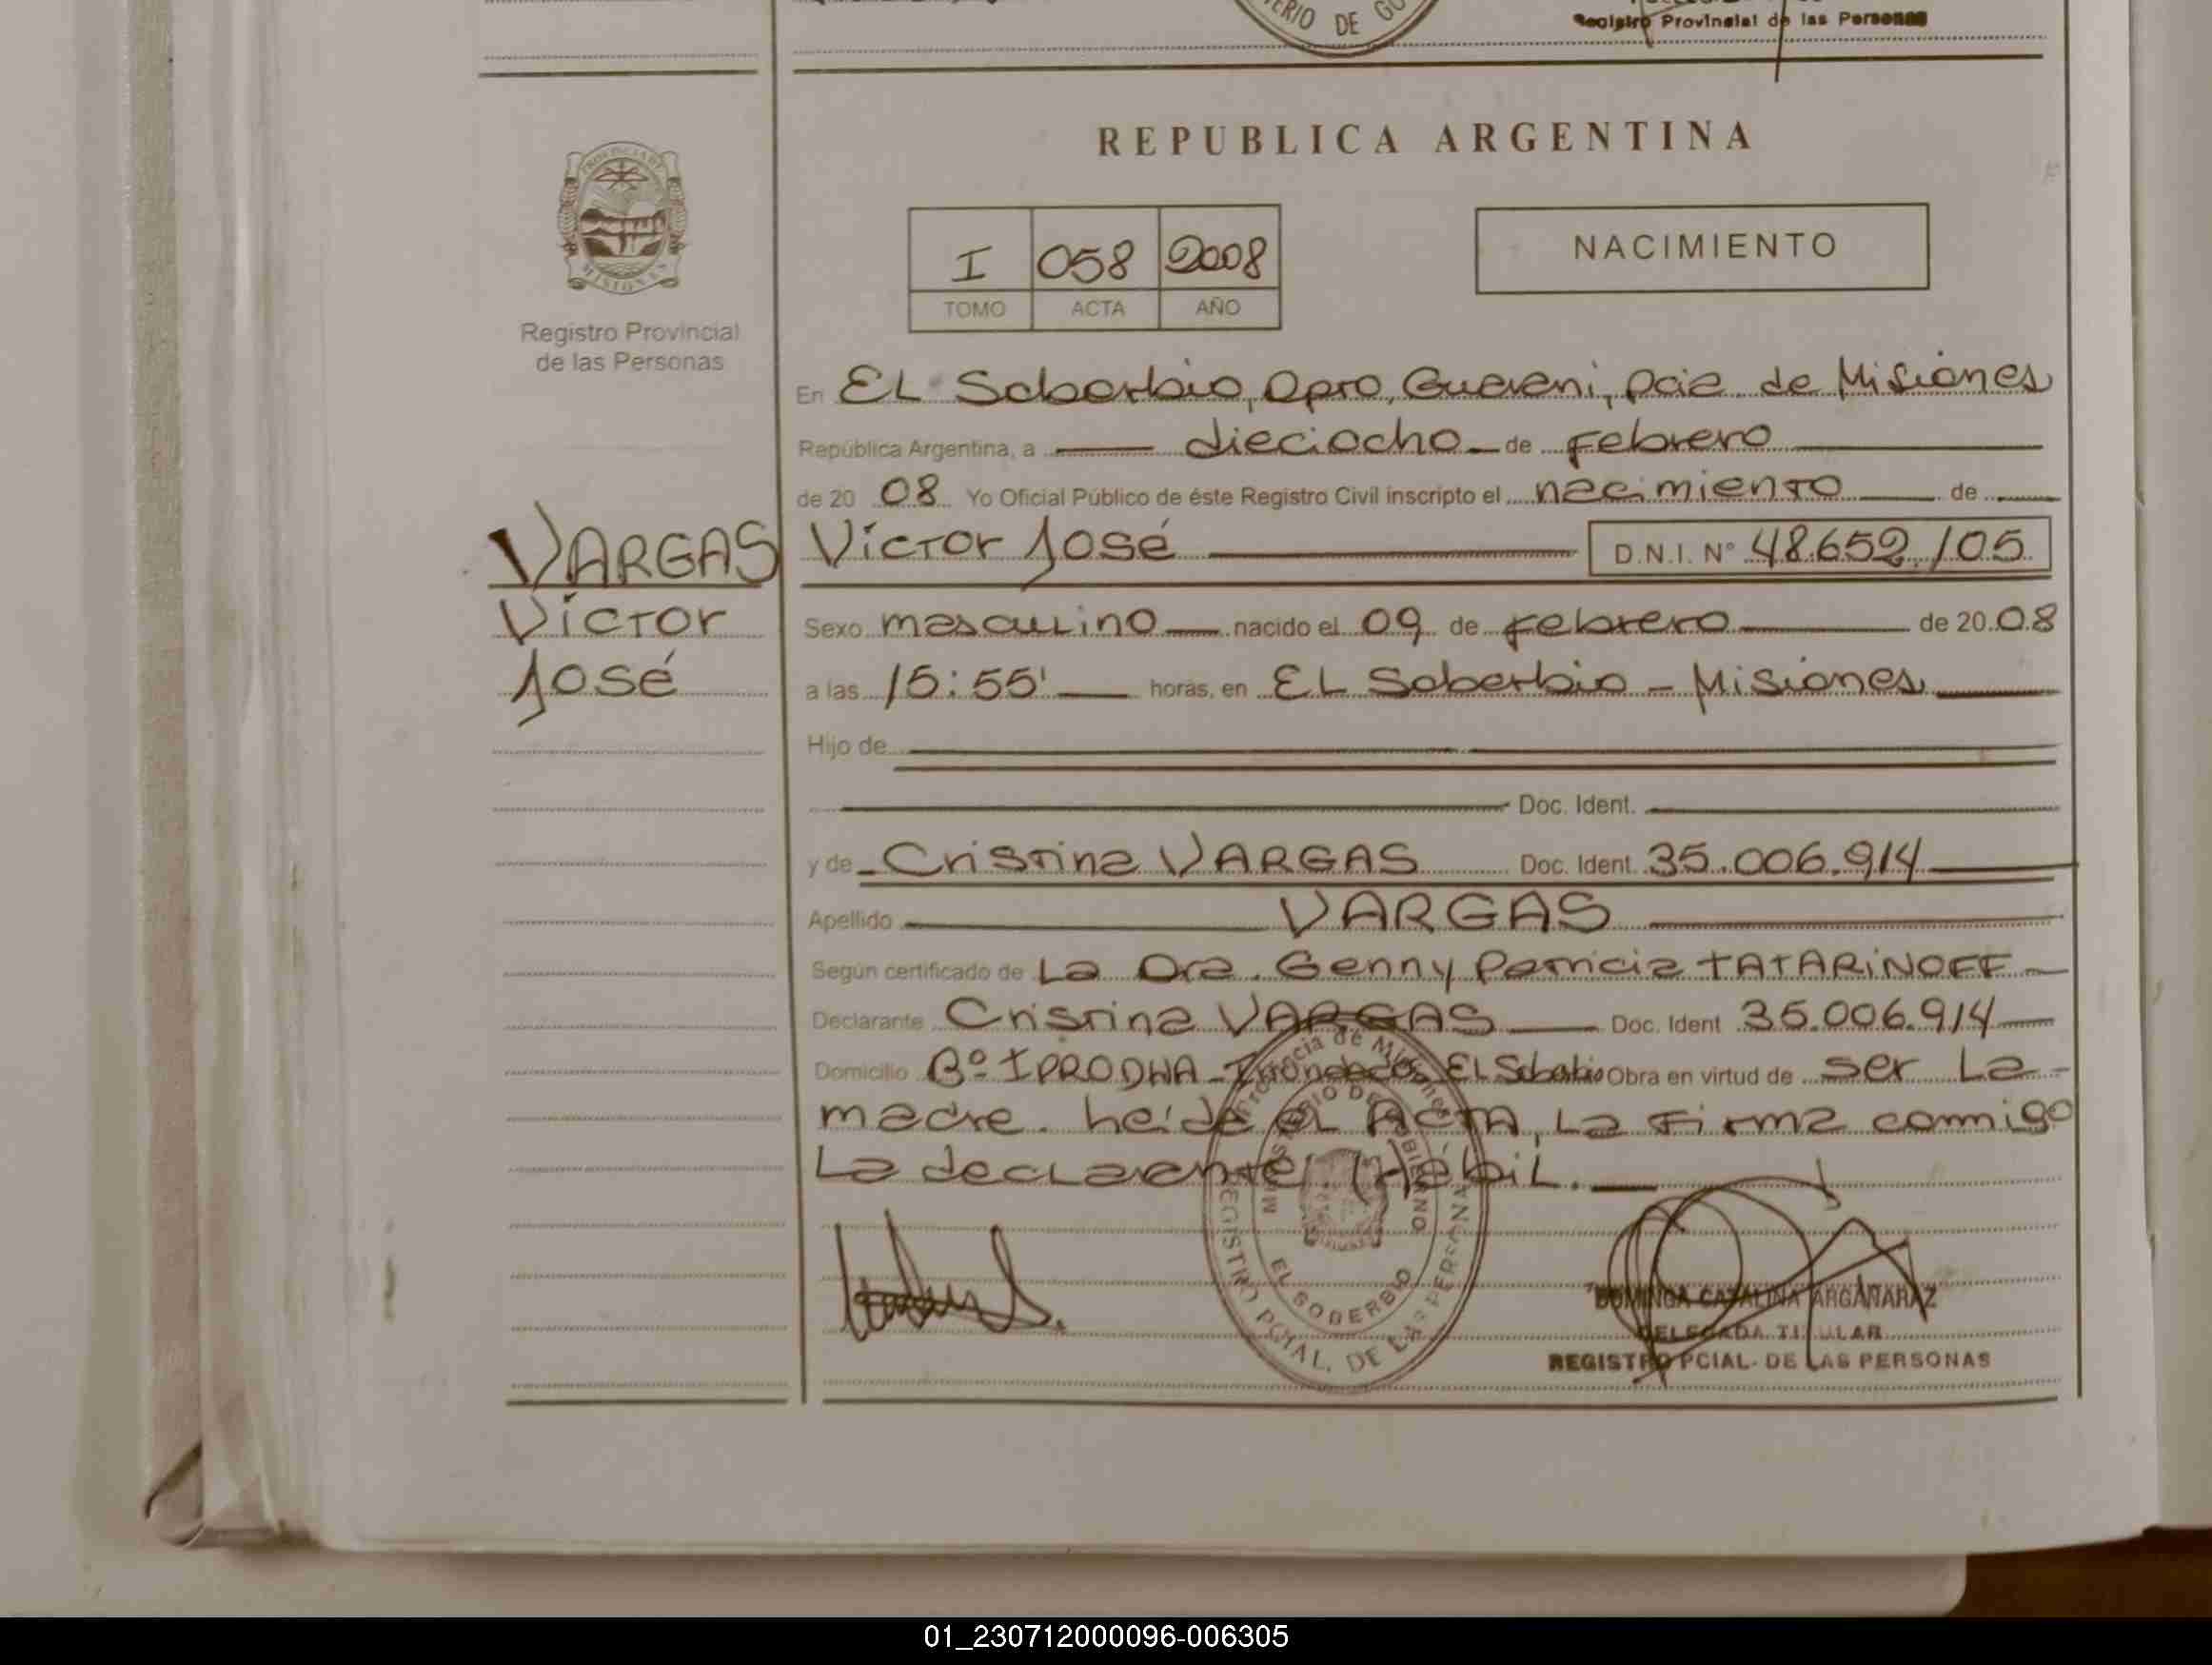 Registro Provincial de las Personas
REPUBLICA ARGENTINA
PROVINCIA DE
MISIONES
I 058 2008
TOMO ACTA AÑO
NACIMIENTO
Registro Provincial
de las Personas
En EL Soberbio, Dpto, Guarani, Pcia. de Misiones
República Argentina, a dieciocho de Febrero
de 20 08 Yo Oficial Público de éste Registro Civil inscripto el nacimiento de
VARGAS Víctor José D.N.I. N° 48.652.105
Víctor
José
Sexo masculino nacido el 09 de Febrero de 20 08
a las 15:55' horas, en EL Soberbio - Misiones
Hijo de
Doc. Ident.
y de Cristina VARGAS Doc. Ident. 35.006.914
Apellido VARGAS
Según certificado de La Dra. Genny Patricia TATARiNOFF
Declarante Cristina VARGAS Doc. Ident 35.006.914
Domicilio Bº IPRODHA - El Soberbio Obra en virtud de ser La
madre. heida el ACTA, La Firma conmigo
La declarante, Hábil.
Provincia de Misiones
MINISTERIO DE GOBIERNO
EL SOBERBIO
REGISTRO PCIAL. DE LAS PERSONAS
DOMINGA CATALINA ARGAÑARAZ
DELEGADA TITULAR
REGISTRO PCIAL- DE LAS PERSONAS
01_230712000096-006305